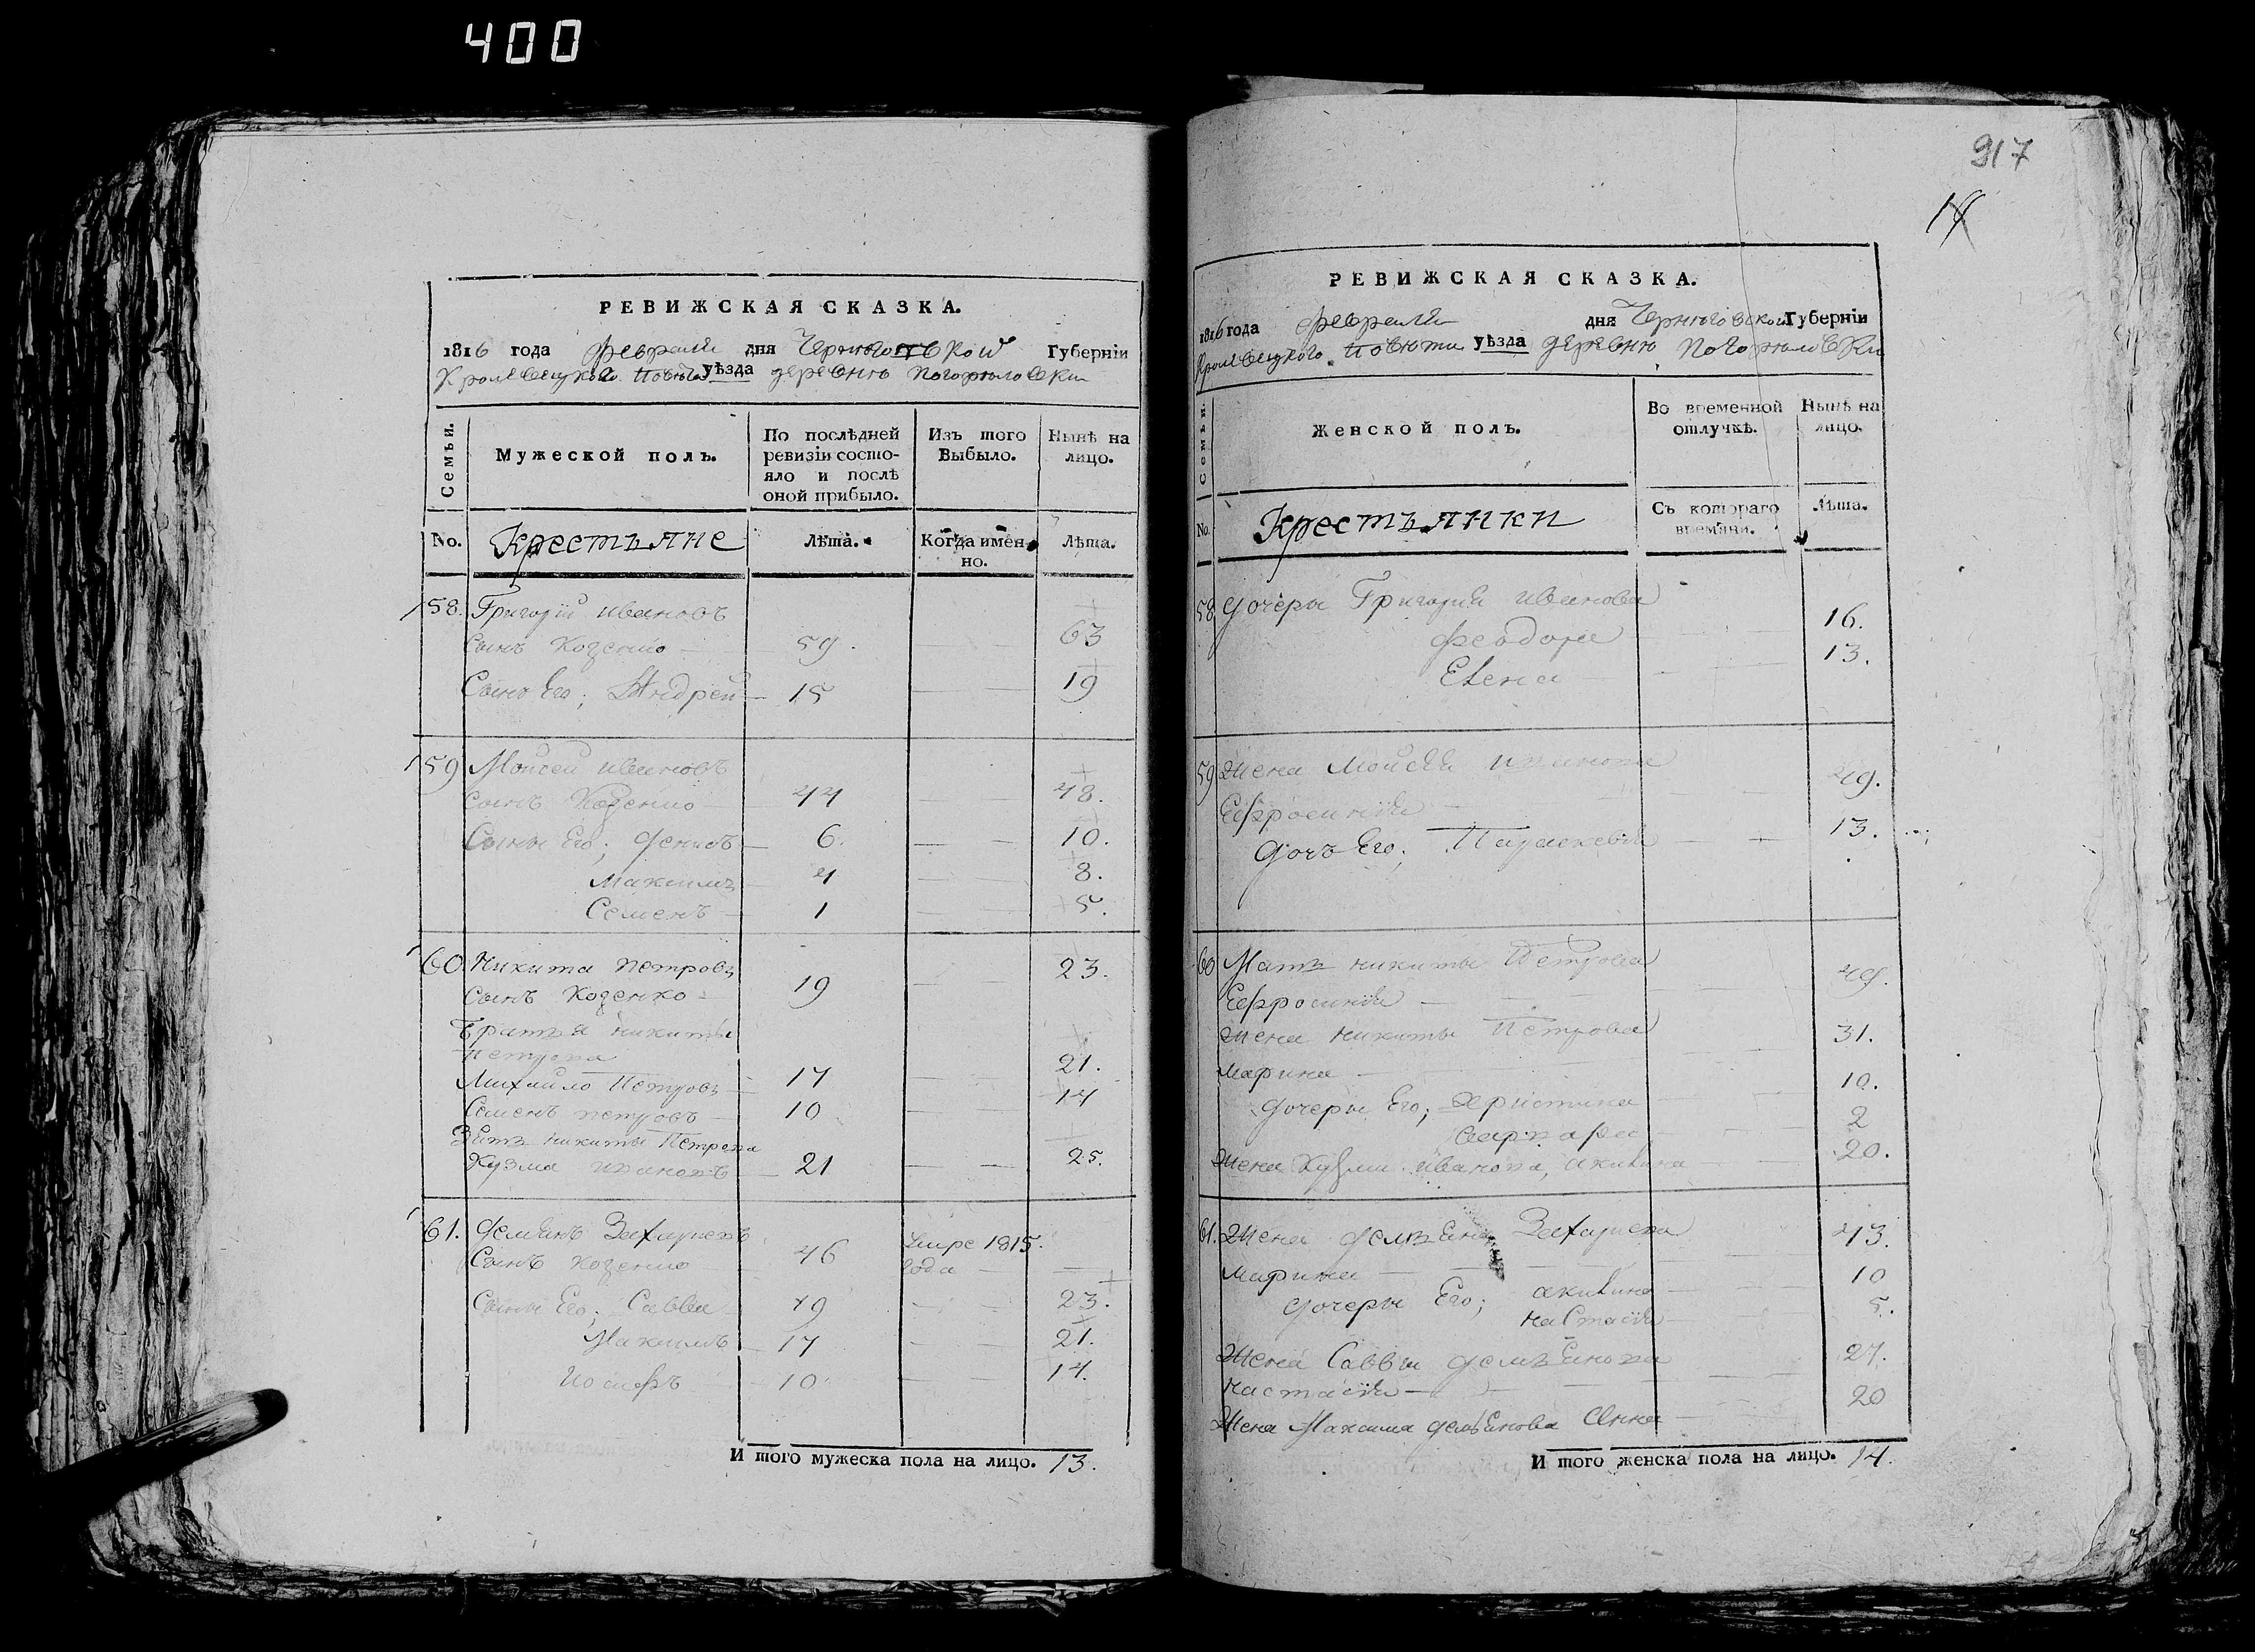 400
РЕВИЖСКАЯ СКАЗКА.
1816 года февраля дня Черниговской Губернїи
Кролевецкого повета уѣзда деревнѣ Погорѣловки
Семьи. Мужеской полъ. По послѣдней ревизїи состояло и послѣ оной прибыло. Изъ того Выбыло. Нынѣ на лицо.
No. Крестьяне Лѣта. Когда именно. Лѣта.
58. Григорїй Ивановъ
Сынъ Козенко 59. 63
Сынъ Его; Андрей 15 19
59 Мойсей Ивановъ
Сынъ Козенко 44 48.
Сыны Его; Денисъ 6. 10.
Максимъ 4 8.
Семенъ 1 5.
60. Никита Петровъ 23.
Сынъ Козенко 19
Братья Никиты
Петрова
Михайло Петровъ 17 21.
Семенъ Петровъ 10 14
Зять Никиты Петрова
Кузма Ивановъ 21 25.
61. Демьянъ Захаровъ
Сынъ Козенко 46 Умре 1815. года
Сыны Его; Савва 19 23.
Максимъ 17 21.
Иосифъ 10 14.
И того мужеска пола на лицо. 13.
917
14
РЕВИЖСКАЯ СКАЗКА.
1816 года февраля дня Черниговской Губернїи
Кролевецкого Повета уѣзда деревнѣ Погорѣловки
Семьи. Женской полъ. Во временной отлучкѣ. Нынѣ на лицо.
No. Крестьянки Съ котораго времяни. Лѣта.
58 Дочеры Григория Иванова
Феодора 16.
Елена 13.
59 Жена Мойсея Иванова 49.
Ефросиния
Дочь Его; Параскевия 13.
60 Мать Никиты Петрова 49.
Ефросиния
Жена Никиты Петрова 31.
Марина
Дочеры Его; Христина 10.
Варвара 2
Жена Кузми Иванова, Акилина 20.
61. Жена Демьяна Захарова 43.
Марина
Дочеры Его; Акилина 10
Настасия 5.
Жена Саввы Демьянова 27.
Настасия
Жена Максима Демьянова Анна 20
И того женска пола на лицо. 14.